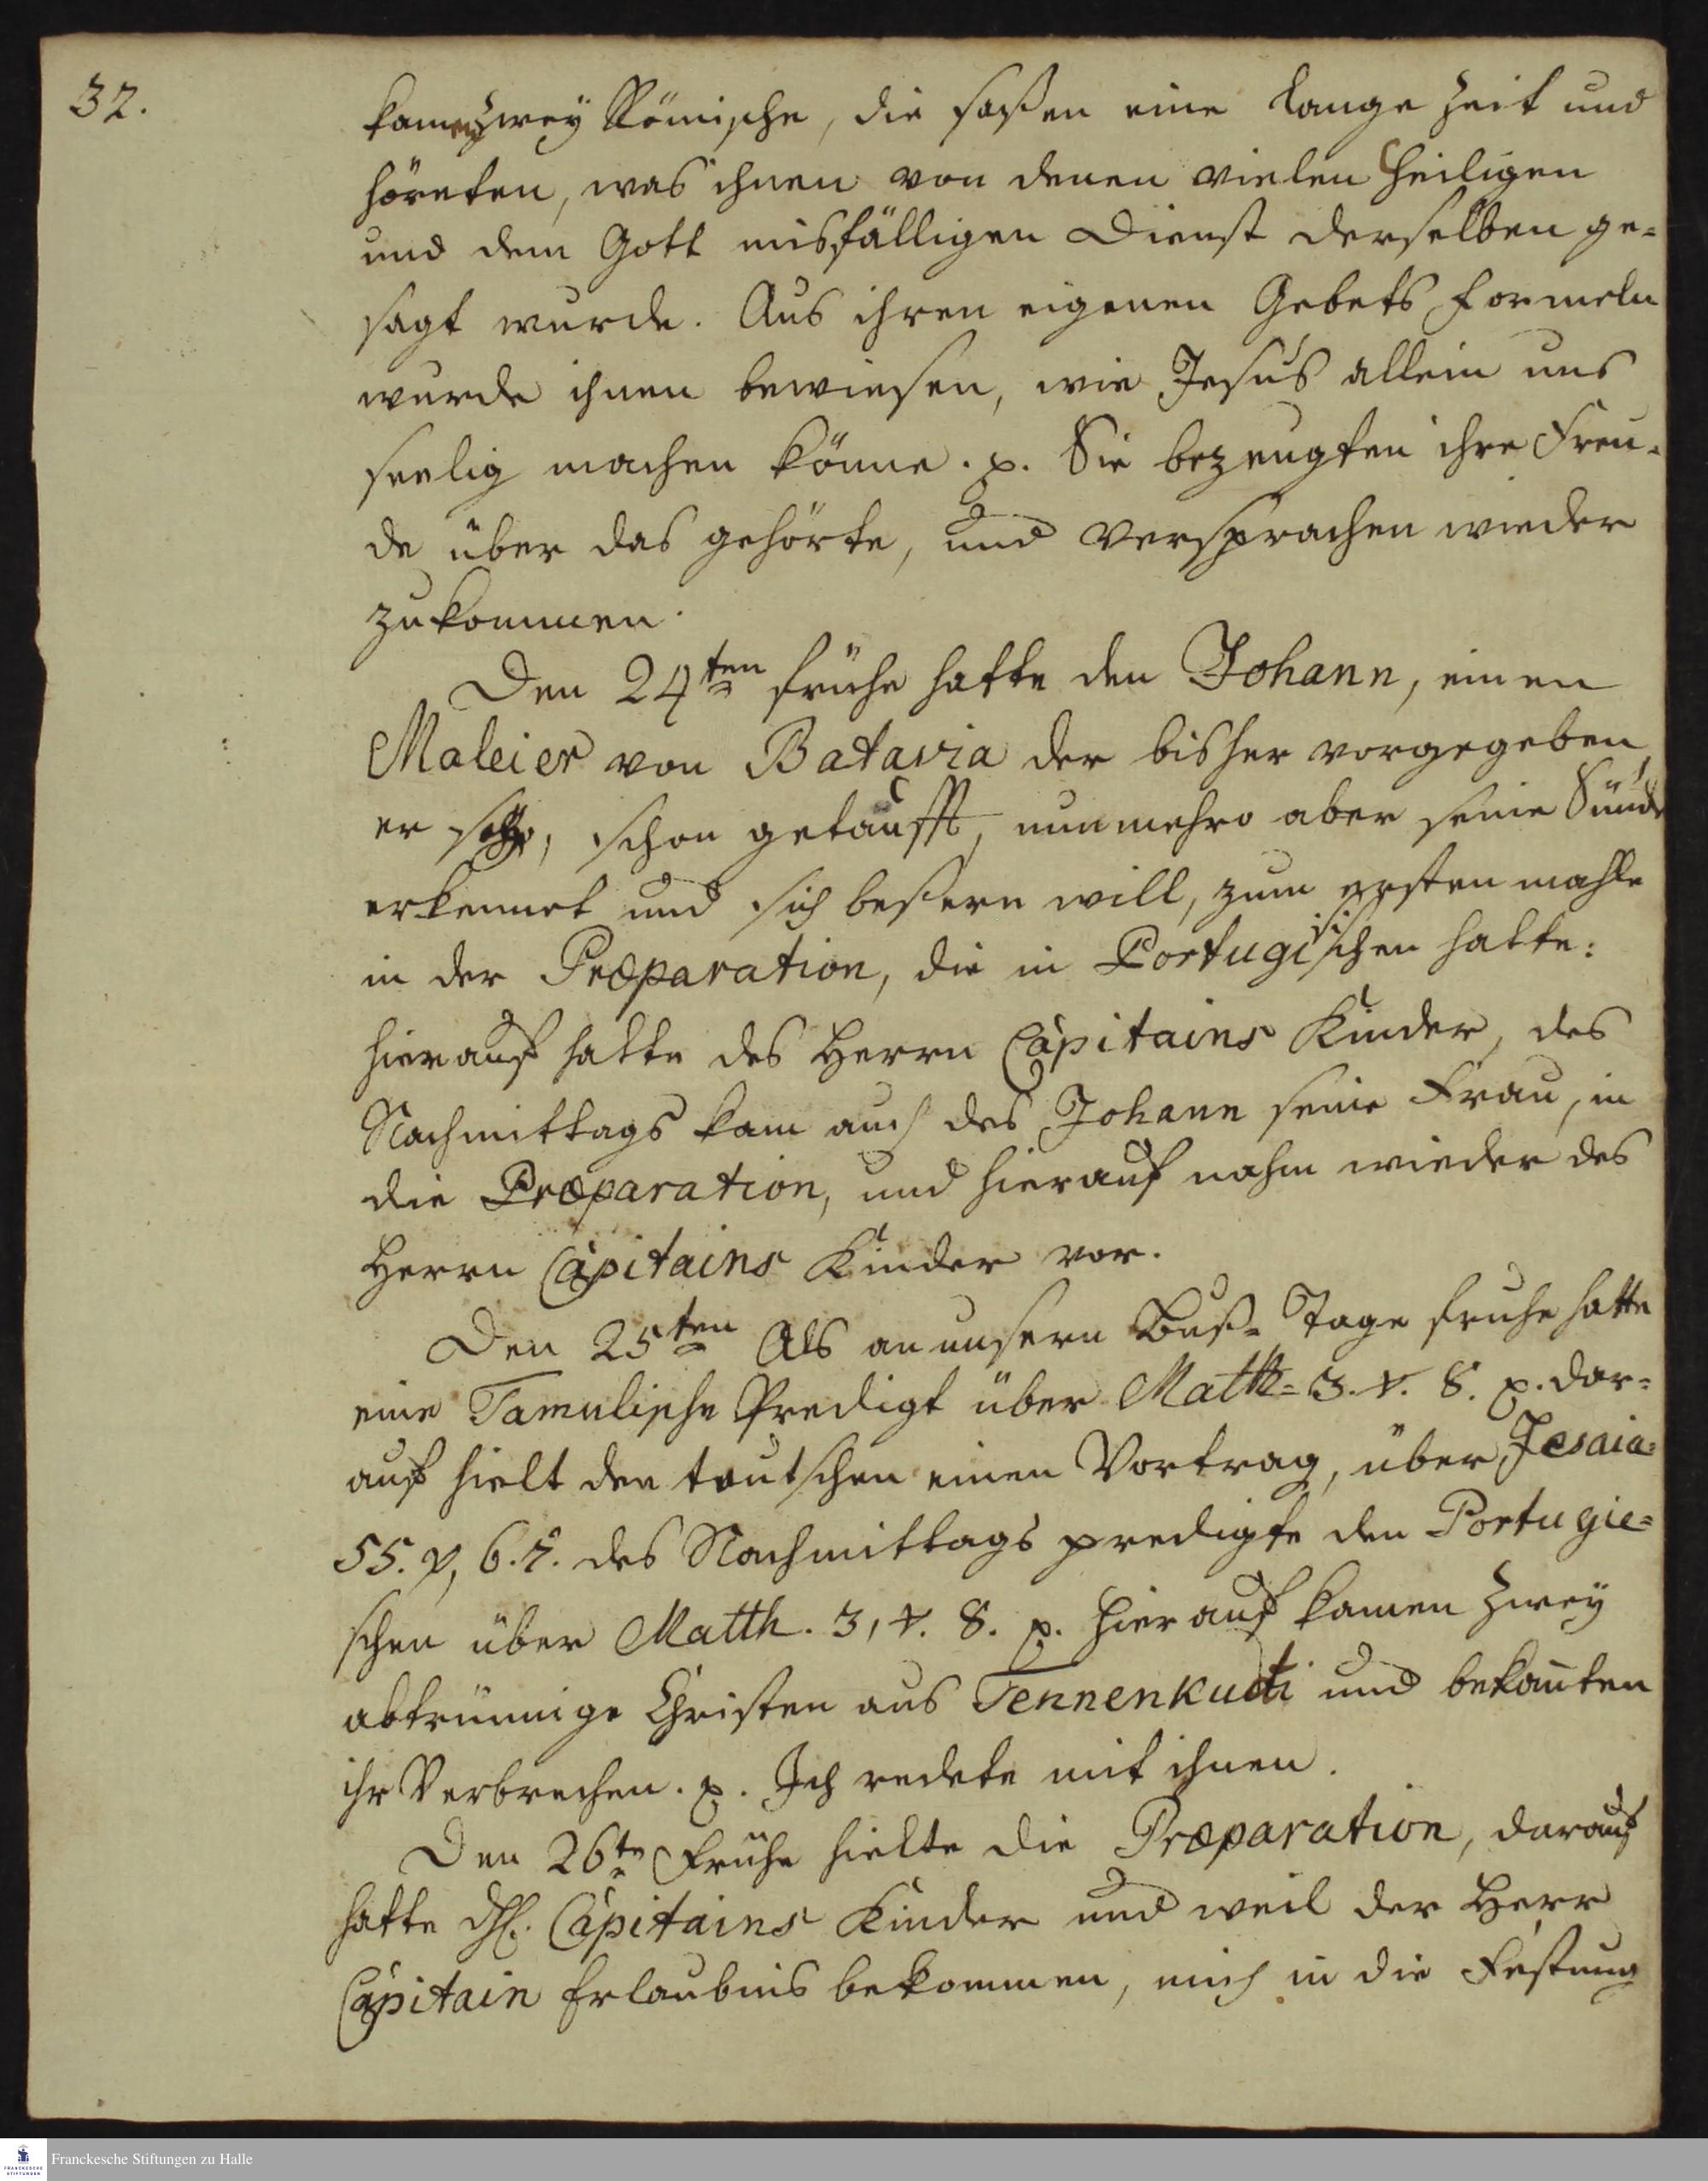 32.
kamen zwey Römische, die saßen eine lange Zeit und
höreten, was ihnen von denen vielen Heiligen
und dem Gott misfälligen Dienst derselben ge-
sagt wurde. Aus ihren eigenen Gebets formeln
wurde ihnen bewiesen, wie Jesus allein uns
seelig machen könne. p. Sie bezeugten ihre Freu-
de über das gehörte, und versprachen wieder
zukommen.
Den 24ten frühe hatte den Johann, einen
Maleier von Batavia der bisher vorgegeben
er seye, schon getaufft, nunmehro aber seine Sünde
erkennet und sich beßern will, zum ersten mahle
in der Præparation, die in Portugisischen hatte:
hierauf hatte des Herrn Capitains Kinder, des
Nachmittags kam auch des Johann seine Frau, in
die Præparation, und hierauf nahm wieder des
Herrn Capitains Kinder vor.
Den 25ten Als an unsern Buß- Tage fruhe hatte
eine Tamulische Predigt über Matth= 3. v. 8. p. dar-
auf hielt den teutschen einen Vortrag, über Jesaia=
55. v, 6.7. des Nachmittags predigte den Portugie=
schen über Matth. 3, v. 8. p. hierauf kamen zwey
abtrünnige Christen aus Tennenkudi und bekañten
ihr Verbrechen. p. Ich redete mit ihnen.
Den 26te Frühe hielte die Præparation, darauf
hatte dH. Capitains Kinder und weil der Herr
Capitain Erlaubnis bekommen, mich in die Festung
Franckesche Stiftungen zu Halle